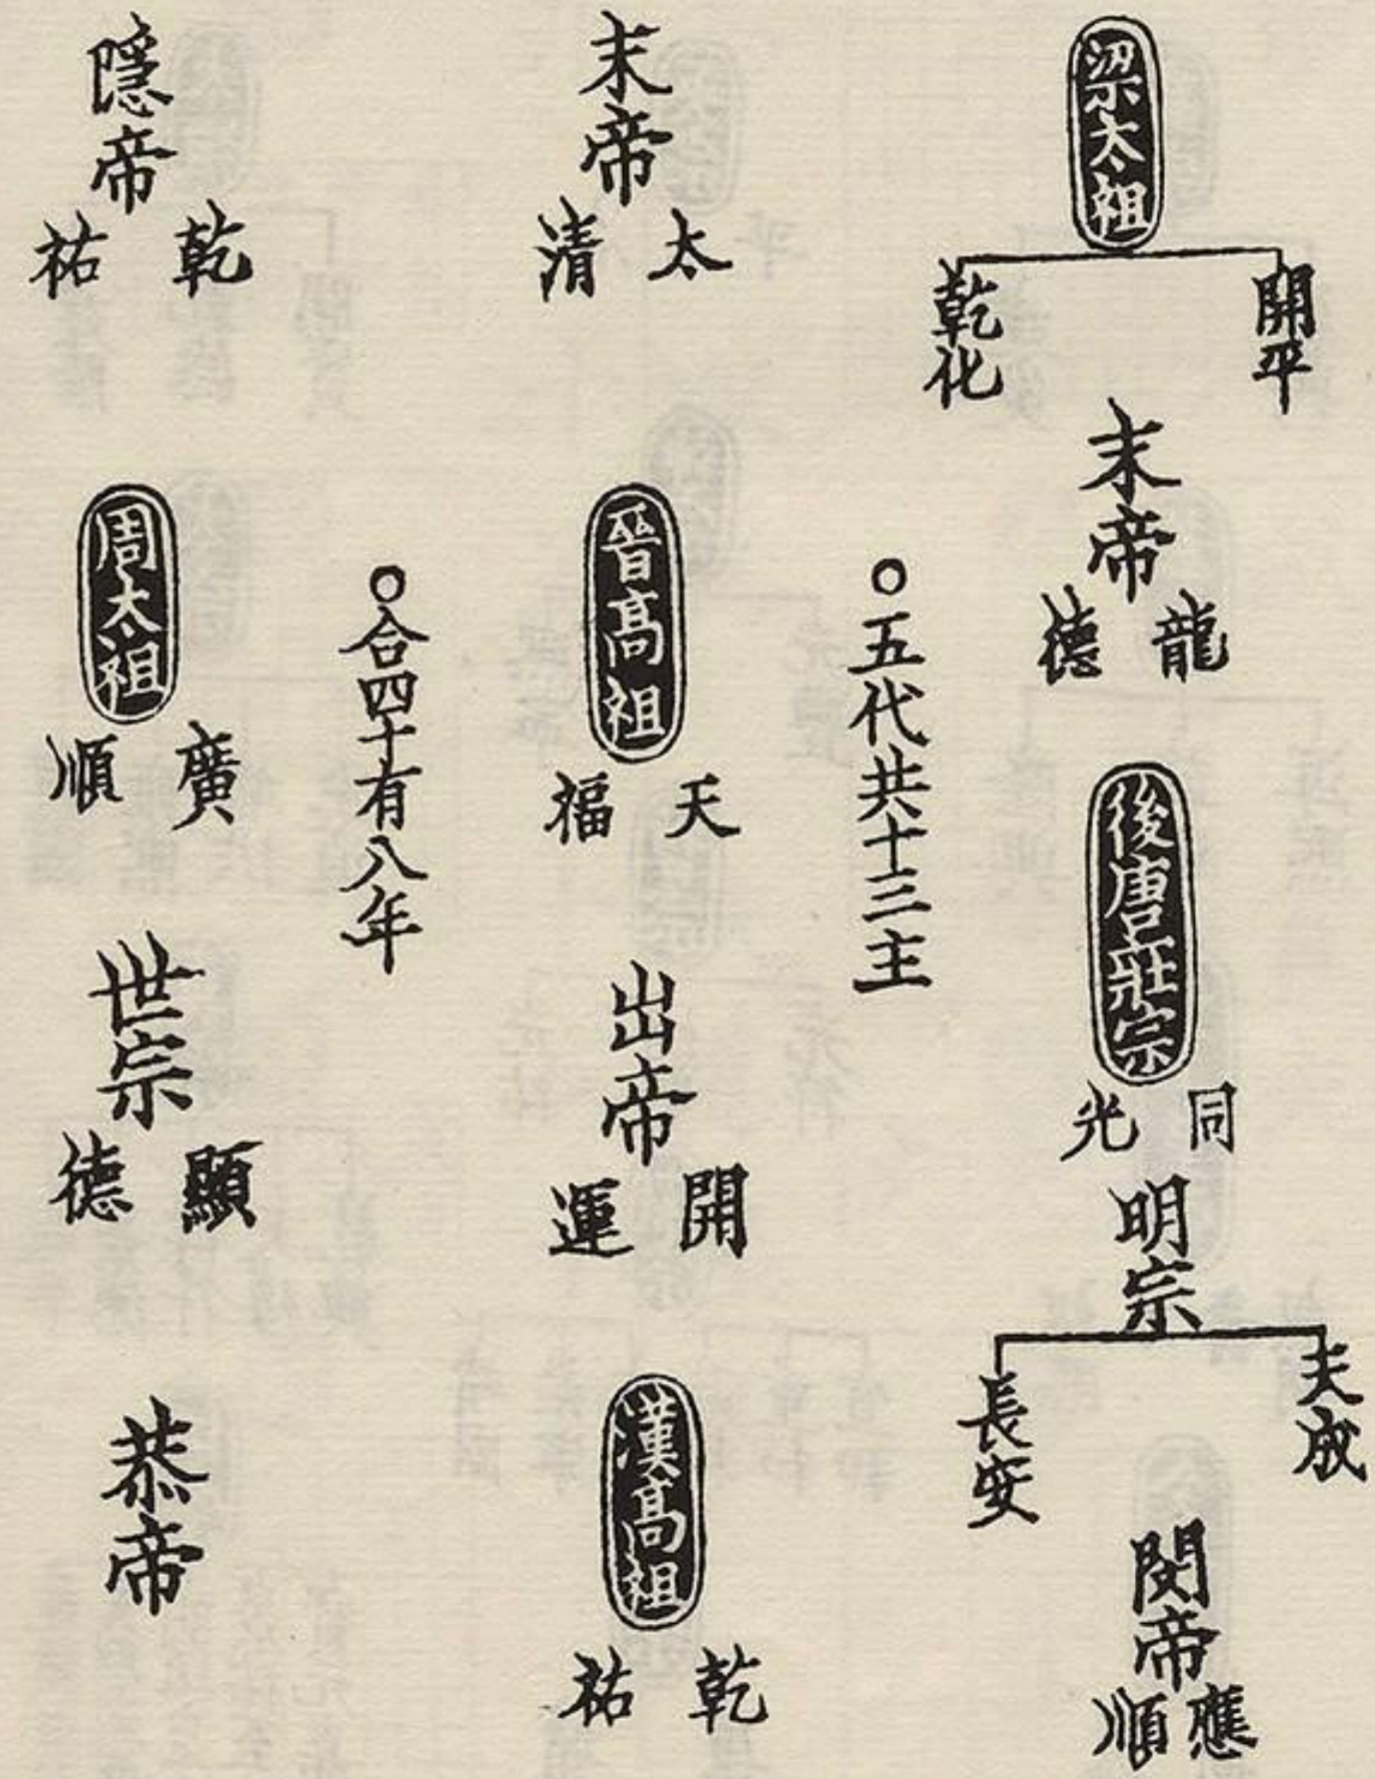 梁太祖
開平
乾化
末帝
龍德
後唐莊宗
同光
明宗
天成
長安
閔帝
應順
○五代共十三主
末帝
太清
晉高祖
天福
出帝
開運
漢高祖
乾祐
○合四十有八年
隱帝
乾祐
周太祖
廣順
世宗
顯德
恭帝